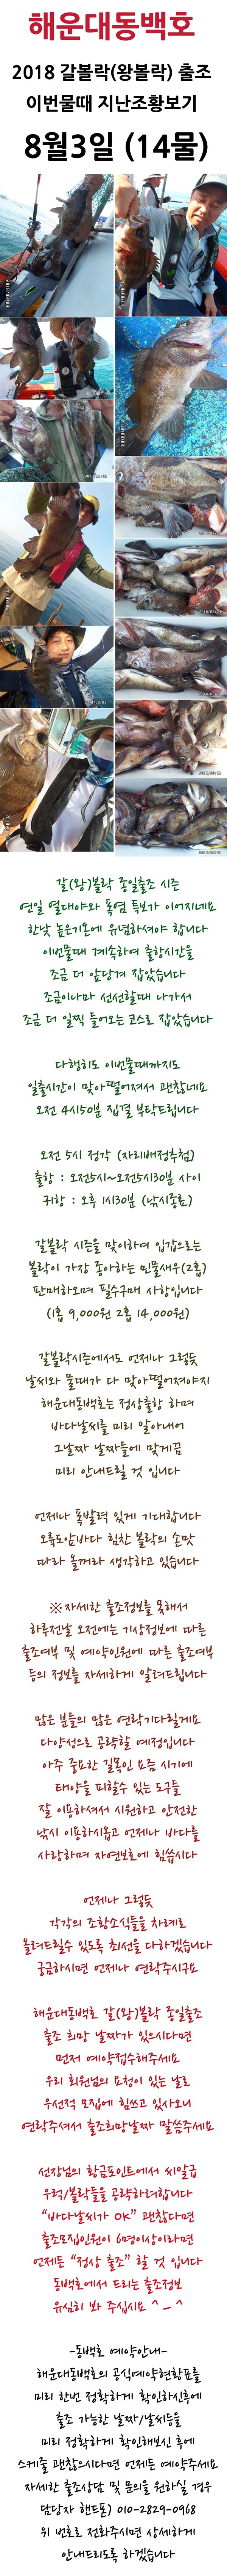 해운대동백호
2018 갈볼락(왕볼락) 출조
이번물때 지난조황보기
8월3일 (14물)
갈(왕)볼락 종일출조 시즌
연일 열대야와 폭염 특보가 이어지네요
한낮 높은기온에 유념하셔야 합니다
이번물때 계속하여 출항시간을
조금 더 앞당겨 잡았습니다
조금이나마 선선할때 나가서
조금 더 일찍 들어오는 코스로 잡았습니다
다행히도 이번물때까지도
일출시간이 맞아떨어져서 괜찮네요
오전 4시50분 집결 부탁드립니다
오전 5시 정각 (자리배정추첨)
출항 : 오전5시~오전5시30분 사이
귀항 : 오후 1시30분 (낚시종료)
갈볼락 시즌을 맞이하여 입감으로는
볼락이 가장 좋아하는 민물새우(2홉)
판매하오며 필수구매 사항입니다
(1홉 9,000원 2홉 14,000원)
갈볼락시즌에서도 언제나 그렇듯
날씨와 물때가 다 맞아떨어져야지
해운대동백호는 정상출항 하며
바다날씨를 미리 알아내어
그날짜 날짜들에 맞게끔
미리 안내드릴 것 입니다
언제나 폭발력 있게 기대합니다
오륙도앞바다 힘찬 볼락의 손맛
따라 올꺼라 생각하고 있습니다
※자세한 출조정보를 못해서
하루전날 오전에는 기상정보에 따른
출조여부 및 예약인원에 따른 출조여부
등의 정보를 자세하게 알려드립니다
많은 분들의 많은 연락기다릴게요
다양성으로 공략할 예정입니다
아주 중요한 길목인 요즘 시기에
태양을 피할수 있는 도구들
잘 이용하셔서 시원하고 안전한
낚시 이용하시옵고 언제나 바다를
사랑하며 자연보호에 힘씁시다
언제나 그렇듯
각각의 조황소식들을 차례로
올려드릴수 있도록 최선을 다하겠습니다
궁금하시면 언제나 연락주시구요
해운대동백호 갈(왕)볼락 종일출조
출조 희망 날짜가 있으시다면
먼저 예약접수해주세요
우리 회원님의 요청이 있는 날로
우선적 모집에 힘쓰고 있사오니
연락주셔서 출조희망날짜 말씀주세요
선장님의 황금포인트에서 씨알급
우럭/볼락들을 공략하려합니다
"바다날씨가 OK" 괜찮다면
출조모집인원이 6명이상이라면
언제든 "정상 출조" 할 것 입니다
동백호에서 드리는 출조정보
유심히 봐 주십시요 ^ - ^
-동백호 예약안내-
해운대동백호의 공식예약현황표를
미리 한번 정확하게 확인하신후에
출조 가능한 날짜/날씨등을
미리 정확하게 확인해보신 후에
스케줄 괜찮으시다면 언제든 예약주세요
자세한 출조상담 및 문의을 원하실 경우
담당자 핸드폰) 010-2829-0968
위 번호로 전화주시면 상세하게
안내드리도록 하겠습니다